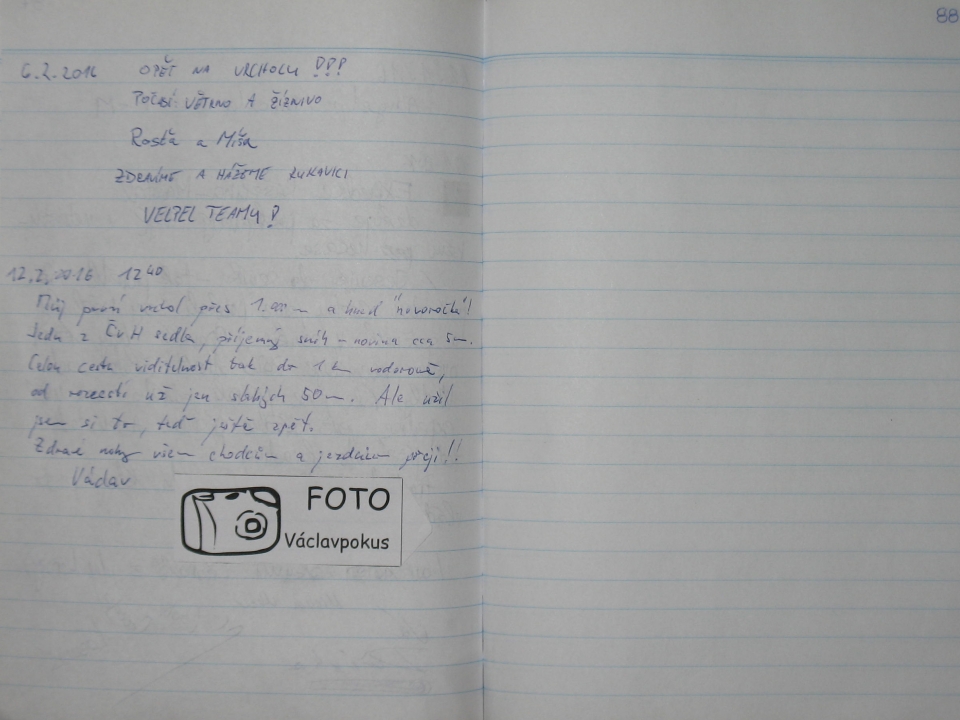 88
6.2.2016 OPĚT NA VRCHOLU !!!
POČASÍ VĚTRNO A ŽÍZNIVO
Rosťa a Míša
ZDRAVÍME A HÁŽEME RUKAVICI
VELPEL TEAMU !
12.2.2016 12 40
Můj první vrchol přes 1.000 m a hned "novoročka"!
Jedu z ČvH sedla, příjemný sníh - novina cca 5cm.
Celou cestu viditelnost tak do 1 km vodorovně,
od rozcestí už jen slabých 50m. Ale užil
jsem si to, teď ještě zpět.
Zdravé nohy všem chodcům a jezdcům přeji!!
Václav
FOTO
Václavpokus